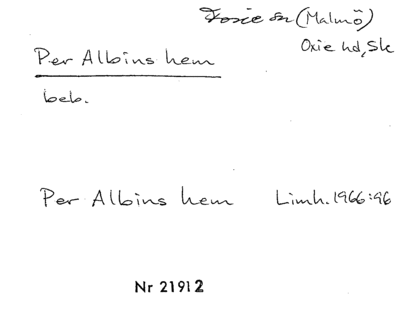 Foxie sn (Malmö)
Oxie hd, Sk
Per Albins hem
beb.
Per Albins hem Limh. 1966:96
Nr 21912